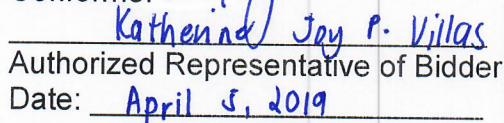 Katherine Joy P. Villas
Authorized Representative of Bidder
Date: April 5, 2019